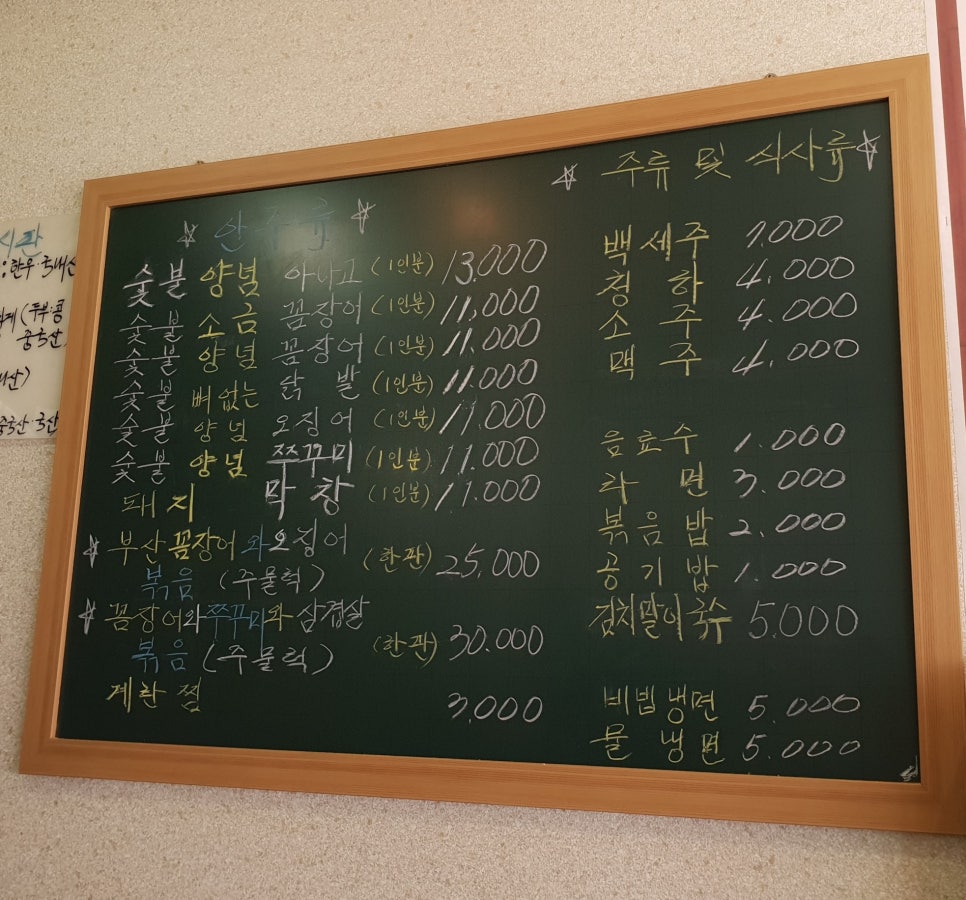 안주류
숯불 양념 아나고 (1인분) 13,000
숯불 소금 꼼장어 (1인분) 11,000
숯불 양념 꼼장어 (1인분) 11.000
숯불 뼈없는 닭발 (1인분) 11.000
숯불 양념 오징어 (1인분) 11.000
숯불 양념 쭈꾸미 (1인분) 11.000
돼지 막창 (1인분) 11.000
부산꼼장어와오징어
볶음 (주물럭) (한판) 25,000
꼼장어와쭈꾸미와 삼겹살
볶음 (주물럭) (한판) 30.000
계란찜 3,000
주류 및 식사류
백세주 7.000
청하 4.000
소주 4.000
맥주 4.000
음료수 1.000
라면 3.000
볶음밥 2.000
공기밥 1.000
김치말이국수 5.000
비빔냉면 5.000
물냉면 5.000
:한우 국내산
(두부:콩
중국산
중국산 국산